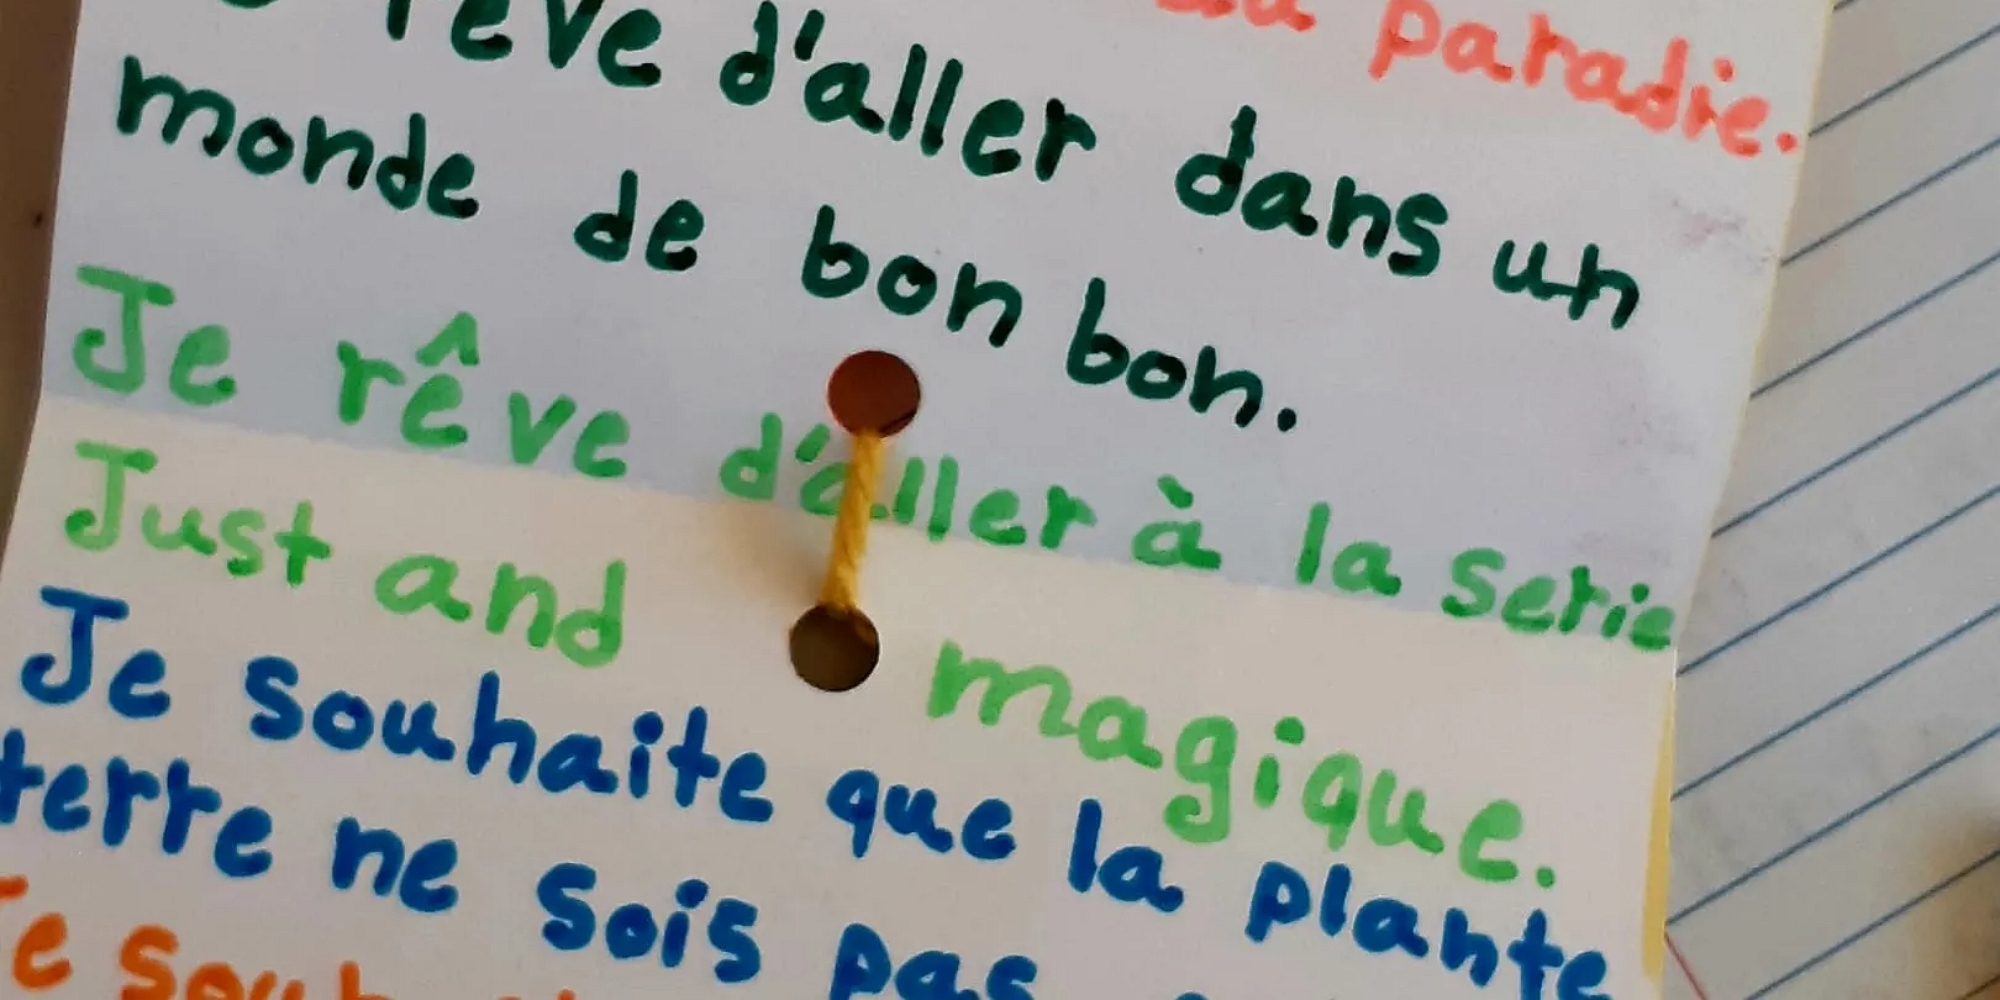 paradie.
rêve d'aller dans un
monde de bon bon.
Je rêve d'aller à la serie
Just and magique.
Je souhaite que la plante
terre ne sois pas